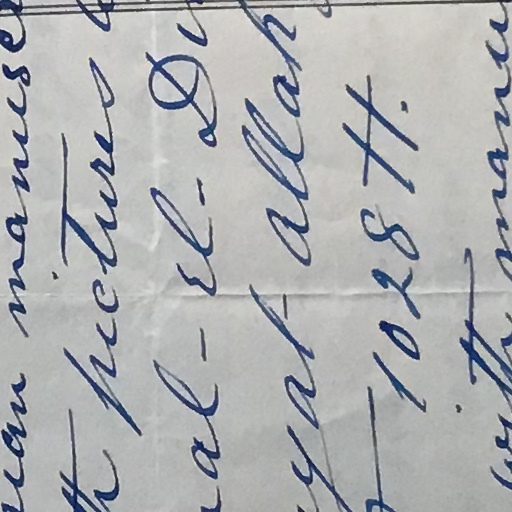 manuscr
pictures
al-el-Di
yat allah
1028 H.
with manu